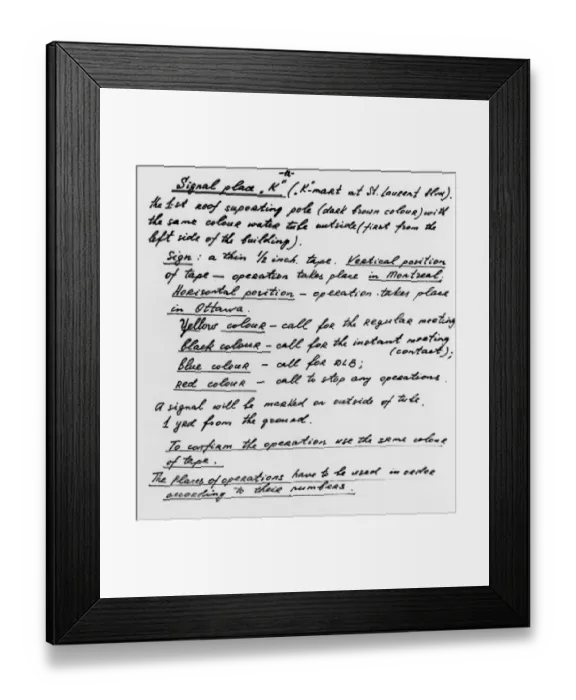 -n-
Signal place „K" („K"-mart at St. Laurent Blvd).
the 1st roof suporting pole (dark brown colour) with
the same colour water tube outside (first from the
left side of the building).
Sign: a thin 1/2 inch. tape. Vertical position
of tape — operation takes place in Montreal,
Horisontal position – operation takes place
in Ottawa.
Yellow colour – call for the regular meeting
black colour – call for the instant meeting
(contact);
blue colour – call for DLB;
red colour – call to stop any operations.
A signal will be marked on outside of tube.
1 yrd from the ground.
To confirm the operation use the same colour
of tape.
The places of operations have to be used in order
according to their numbers.